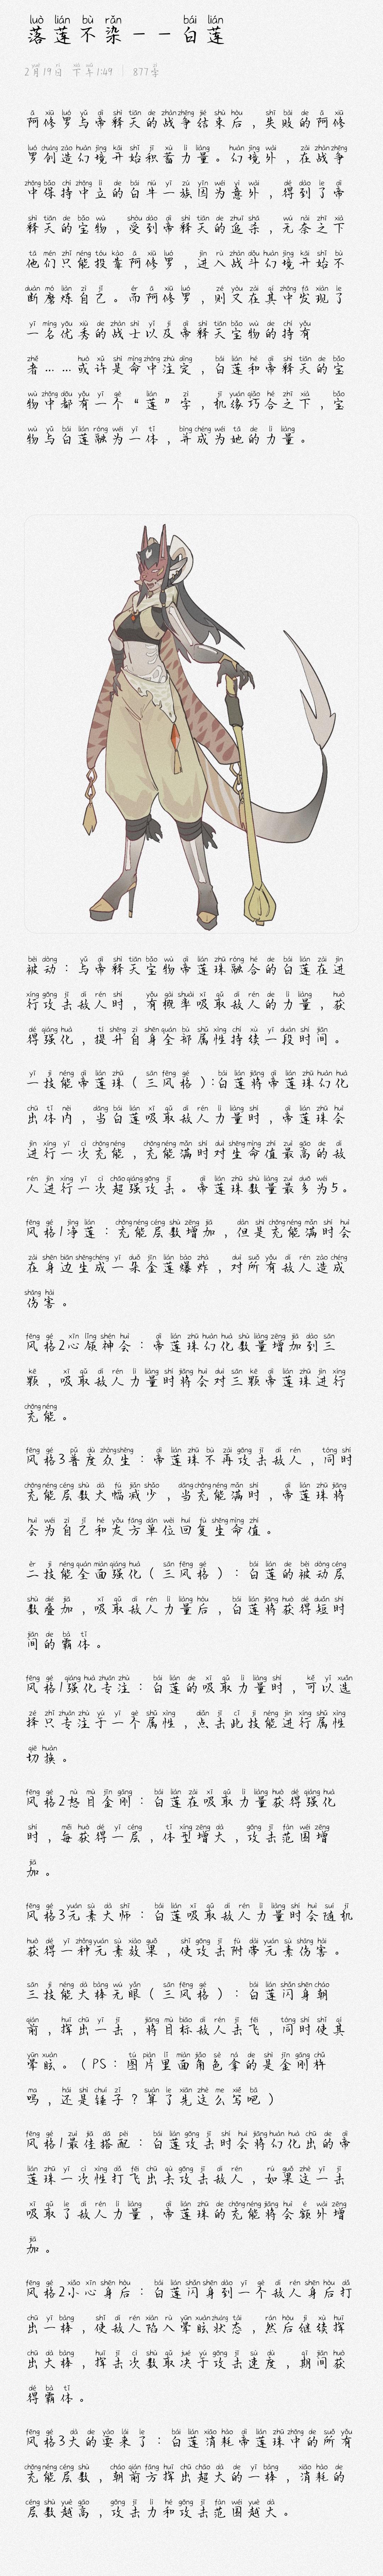 落莲不染——白莲
2月19日 下午1:49 | 877字
阿修罗与帝释天的战争结束后，失败的阿修
罗创造幻境开始积蓄力量。幻境外，在战争
中保持中立的白牛一族因为意外，得到了帝
释天的宝物，受到帝释天的追杀，无奈之下
他们只能投靠阿修罗，进入战斗幻境开始不
断磨炼自己。而阿修罗，则又在其中发现了
一名优秀的战士以及帝释天宝物的持有
者……或许是命中注定，白莲和帝释天的宝
物中都有一个“莲”字，机缘巧合之下，宝
物与白莲融为一体，并成为她的力量。
被动：与帝释天宝物帝莲珠融合的白莲在进
行攻击敌人时，有概率吸取敌人的力量，获
得强化，提升自身全部属性持续一段时间。
一技能帝莲珠（三风格）:白莲将帝莲珠幻化
出体内，当白莲吸取敌人力量时，帝莲珠会
进行一次充能，充能满时对生命值最高的敌
人进行一次超强攻击。帝莲珠数量最多为5。
风格1净莲：充能层数增加，但是充能满时会
在身边生成一朵金莲爆炸，对所有敌人造成
伤害。
风格2心领神会：帝莲珠幻化数量增加到三
颗，吸取敌人力量时将会对三颗帝莲珠进行
充能。
风格3普度众生：帝莲珠不再攻击敌人，同时
充能层数大幅减少，当充能满时，帝莲珠将
会为自己和友方单位回复生命值。
二技能全面强化（三风格）：白莲的被动层
数叠加，吸取敌人力量后，白莲将获得短时
间的霸体。
风格1强化专注：白莲的吸取力量时，可以选
择只专注于一个属性，点击此技能进行属性
切换。
风格2怒目金刚：白莲在吸取力量获得强化
时，每获得一层，体型增大，攻击范围增
加。
风格3元素大师：白莲吸取敌人力量时会随机
获得一种元素效果，使攻击附带元素伤害。
三技能大棒无眼（三风格）：白莲闪身朝
前，挥出一击，将目标敌人击飞，同时使其
晕眩。（PS：图片里面角色拿的是金刚杵
吗，还是锤子？算了先这么写吧）
风格1最佳搭配：白莲攻击时会将幻化出的帝
莲珠一次性打飞出去攻击敌人，如果这一击
吸取了敌人力量，帝莲珠的充能将会额外增
加。
风格2小心身后：白莲闪身到一个敌人身后打
出一棒，使敌人陷入晕眩状态，然后继续挥
出大棒，挥击次数取决于攻击速度，期间获
得霸体。
风格3大的要来了：白莲消耗帝莲珠中的所有
充能层数，朝前方挥出超大的一棒，消耗的
层数越高，攻击力和攻击范围越大。